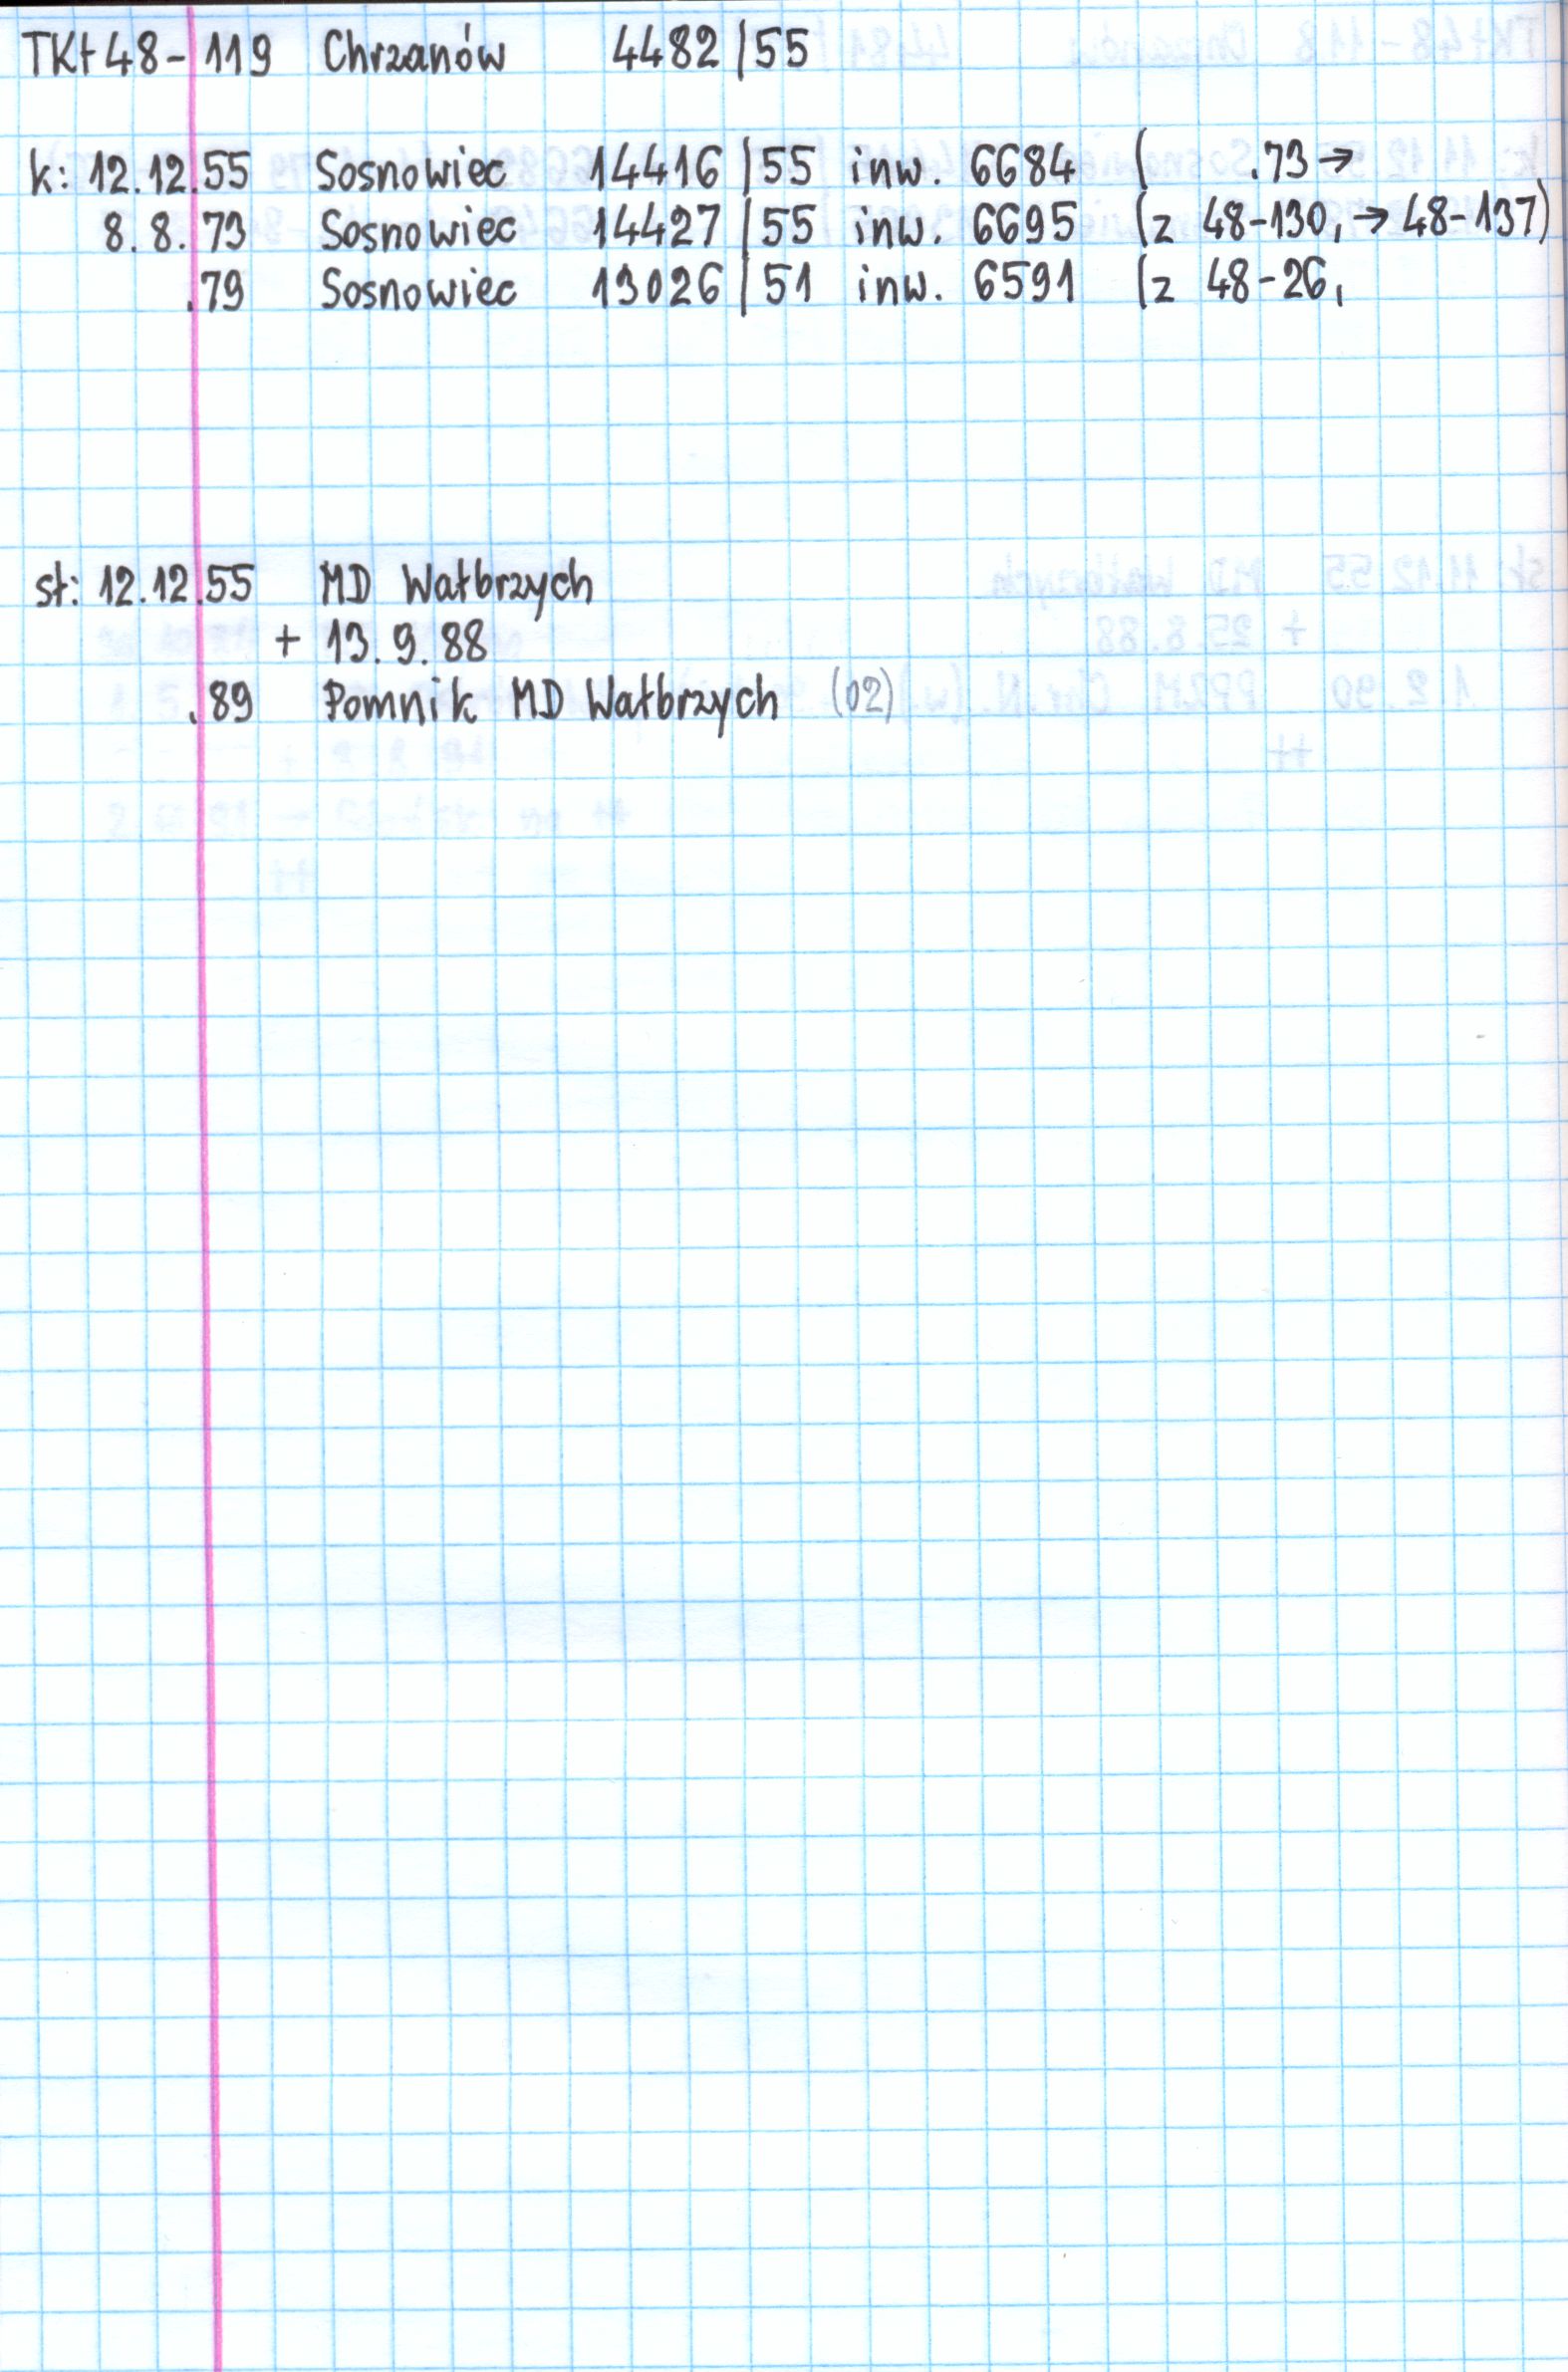 TKt48-119 Chrzanów 4482/55
k: 12.12.55 Sosnowiec 14416/55 inw. 6684 ( .73→
8.8.73 Sosnowiec 14427/55 inw. 6695 (z 48-130, → 48-137)
.79 Sosnowiec 13026/51 inw. 6591 (z 48-26,
st: 12.12.55 MD Wałbrzych
+ 13.9.88
.89 Pomnik MD Wałbrzych (02)